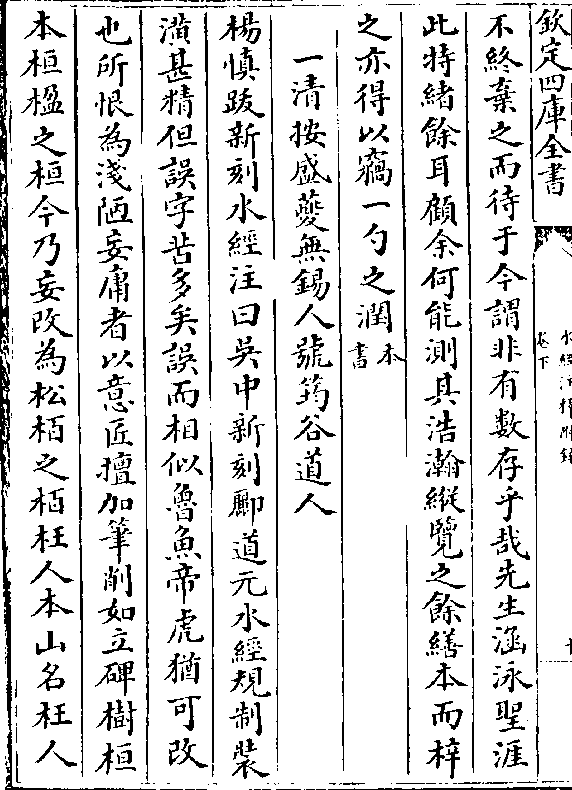 欽定四庫全書
卷下
不終棄之而待于今謂非有數存乎哉先生涵泳聖涯
此特緒餘耳顧余何能測其浩瀚縱覽之餘繕本而梓
之亦得以竊一勺之潤本書
一清按盛夔無錫人號筠谷道人
楊慎跋新刻水經注曰吳中新刻酈道元水經規制裝
潢甚精但誤字苦多矣誤而相似魯魚帝虎猶可改
也所恨為淺陋妄庸者以意匠擅加筆削如立碑樹桓
本桓楹之桓今乃妄改為松栢之栢枉人本山名枉人